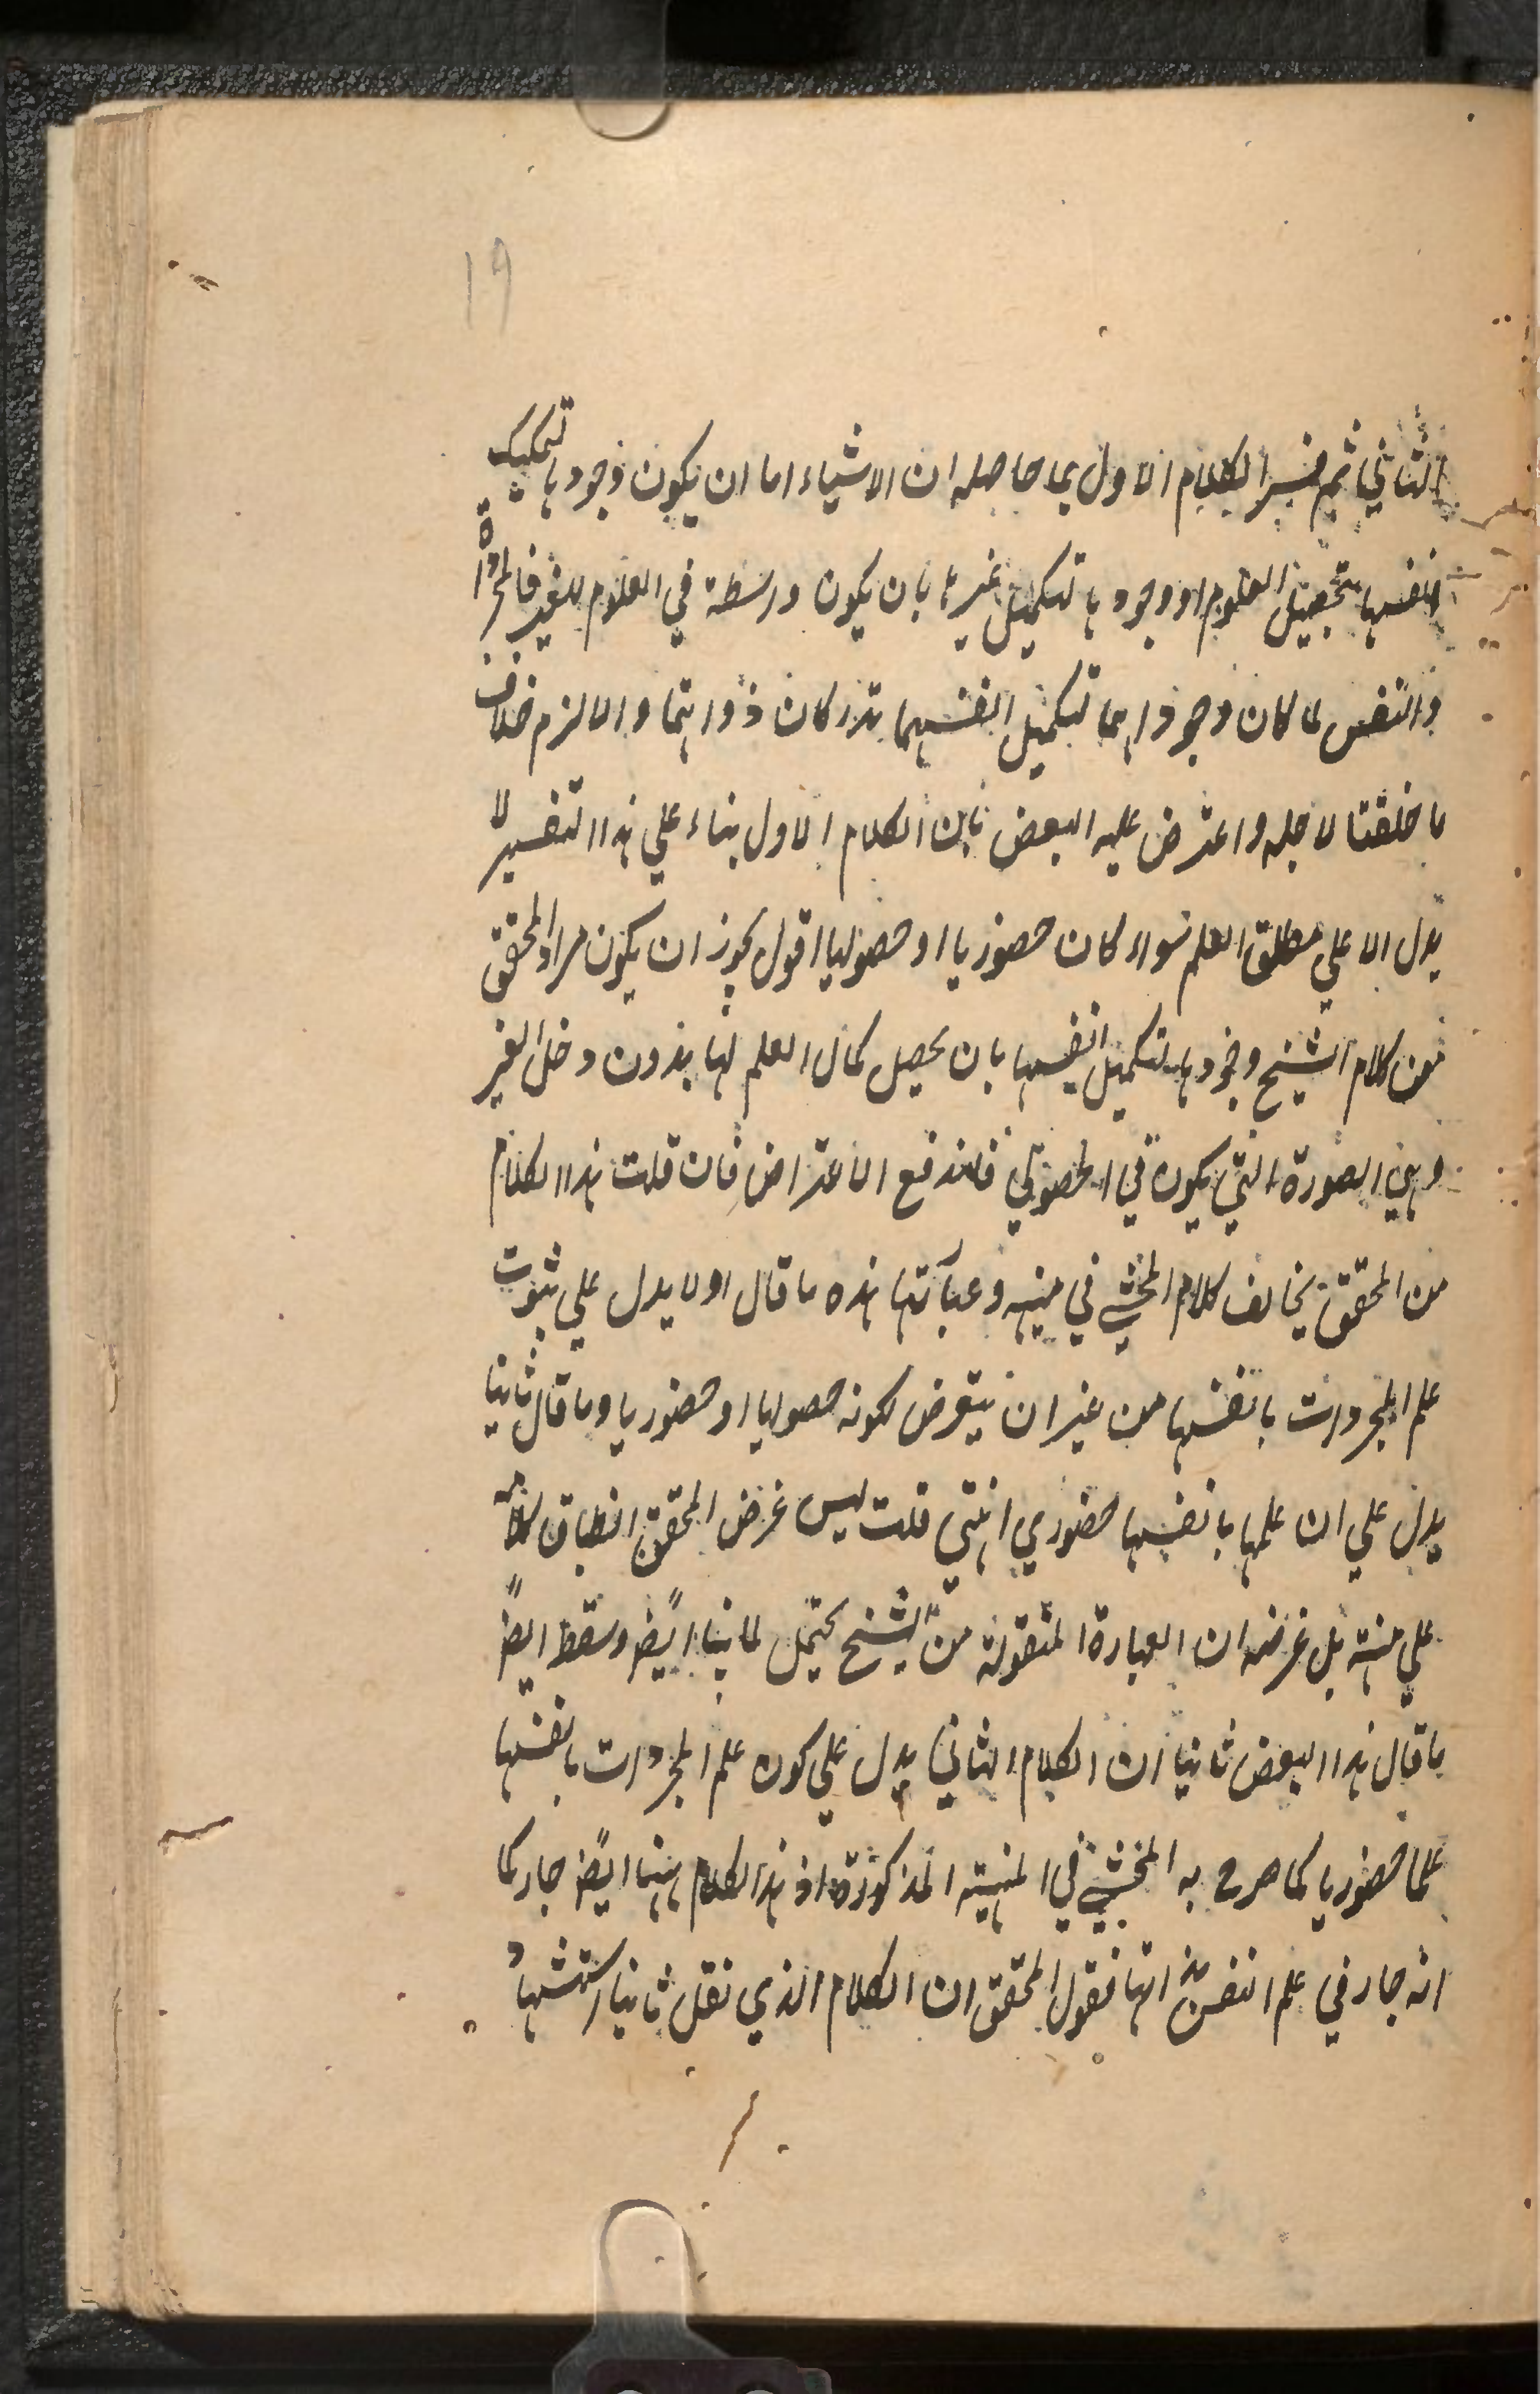 ١٩
الثاني ثم فسر الكلام الاول بما حاصله ان الاشياء اما ان يكون وجودها لتكميل
انفسها بتحصيل العلوم او وجودها لتكميل غيرها بان يكون واسطة في العلوم للغير فالمجردات
والنفس لما كان وجوداهما لتكميل انفسهما تدركان ذواتهما والا لزم خلاف
ما خلقتا لاجله واعترض عليه البعض بان الكلام الاول بناء علي هذا التفسير لا
يدل الا علي مطلق العلم سواء كان حضوريا او حصوليا اقول يجوز ان يكون مراد المحقق
من كلام الشيخ وجودها لتكميل انفسها بان يحصل كمال العلم لها بدون دخل الغير
وهي الصورة التي يكون في الحصولي فاندفع الاعتراض فان قلت هذا الكلام
من المحقق يخالف كلام المحشي في منهيه وعبارتها هذه ما قال اولا يدل علي ثبوت
علم المجردات بانفسها من غير ان يتعرض لكونه حصوليا او حضوريا وما قال ثانيا
يدل علي ان علمها بانفسها حضوري انتهي قلت ليس غرض المحقق انطباق كلامه
علي منهيته بل غرضه ان العبارة المنقولة من الشيخ يحتمل لما بينا ايضً وسقط ايضً
ما قال هذا البعض ثانيا ان الكلام الثاني يدل علي كون علم المجردات بانفسها
علما حضوريا كما صرح به المحشي في المنهية المذكورة اذ هذا الكلام ههنا ايضً جار كما
انه جار في علم النفس بذاتها فقول المحقق ان الكلام الذي نقل ثانيا استشهاد